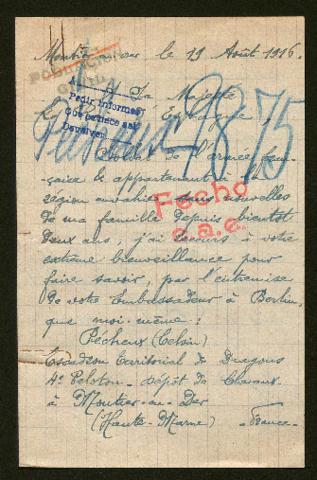 Montier-en-Der le 19 Août 1916.
POBLACION
CIVIL
Pedir informes
Que conteste así
Devolver
A Sa Majesté
Le Roi d'Espagne,
Pécheux 9875
Soldat de l'armée fran-
çaise et appartenant à la
région envahie, sans nouvelles
de ma famille depuis bientôt
Fecho
a.e.
deux ans, j'ai recours à votre
extrême bienveillance pour
faire savoir, par l'entremise
de votre Ambassadeur à Berlin,
que moi-même:
Pécheux (Clair)
Escadron territorial de Dragons
4e Peloton - dépôt de Chevaux
à Montier-en-Der
(Haute-Marne) - France -